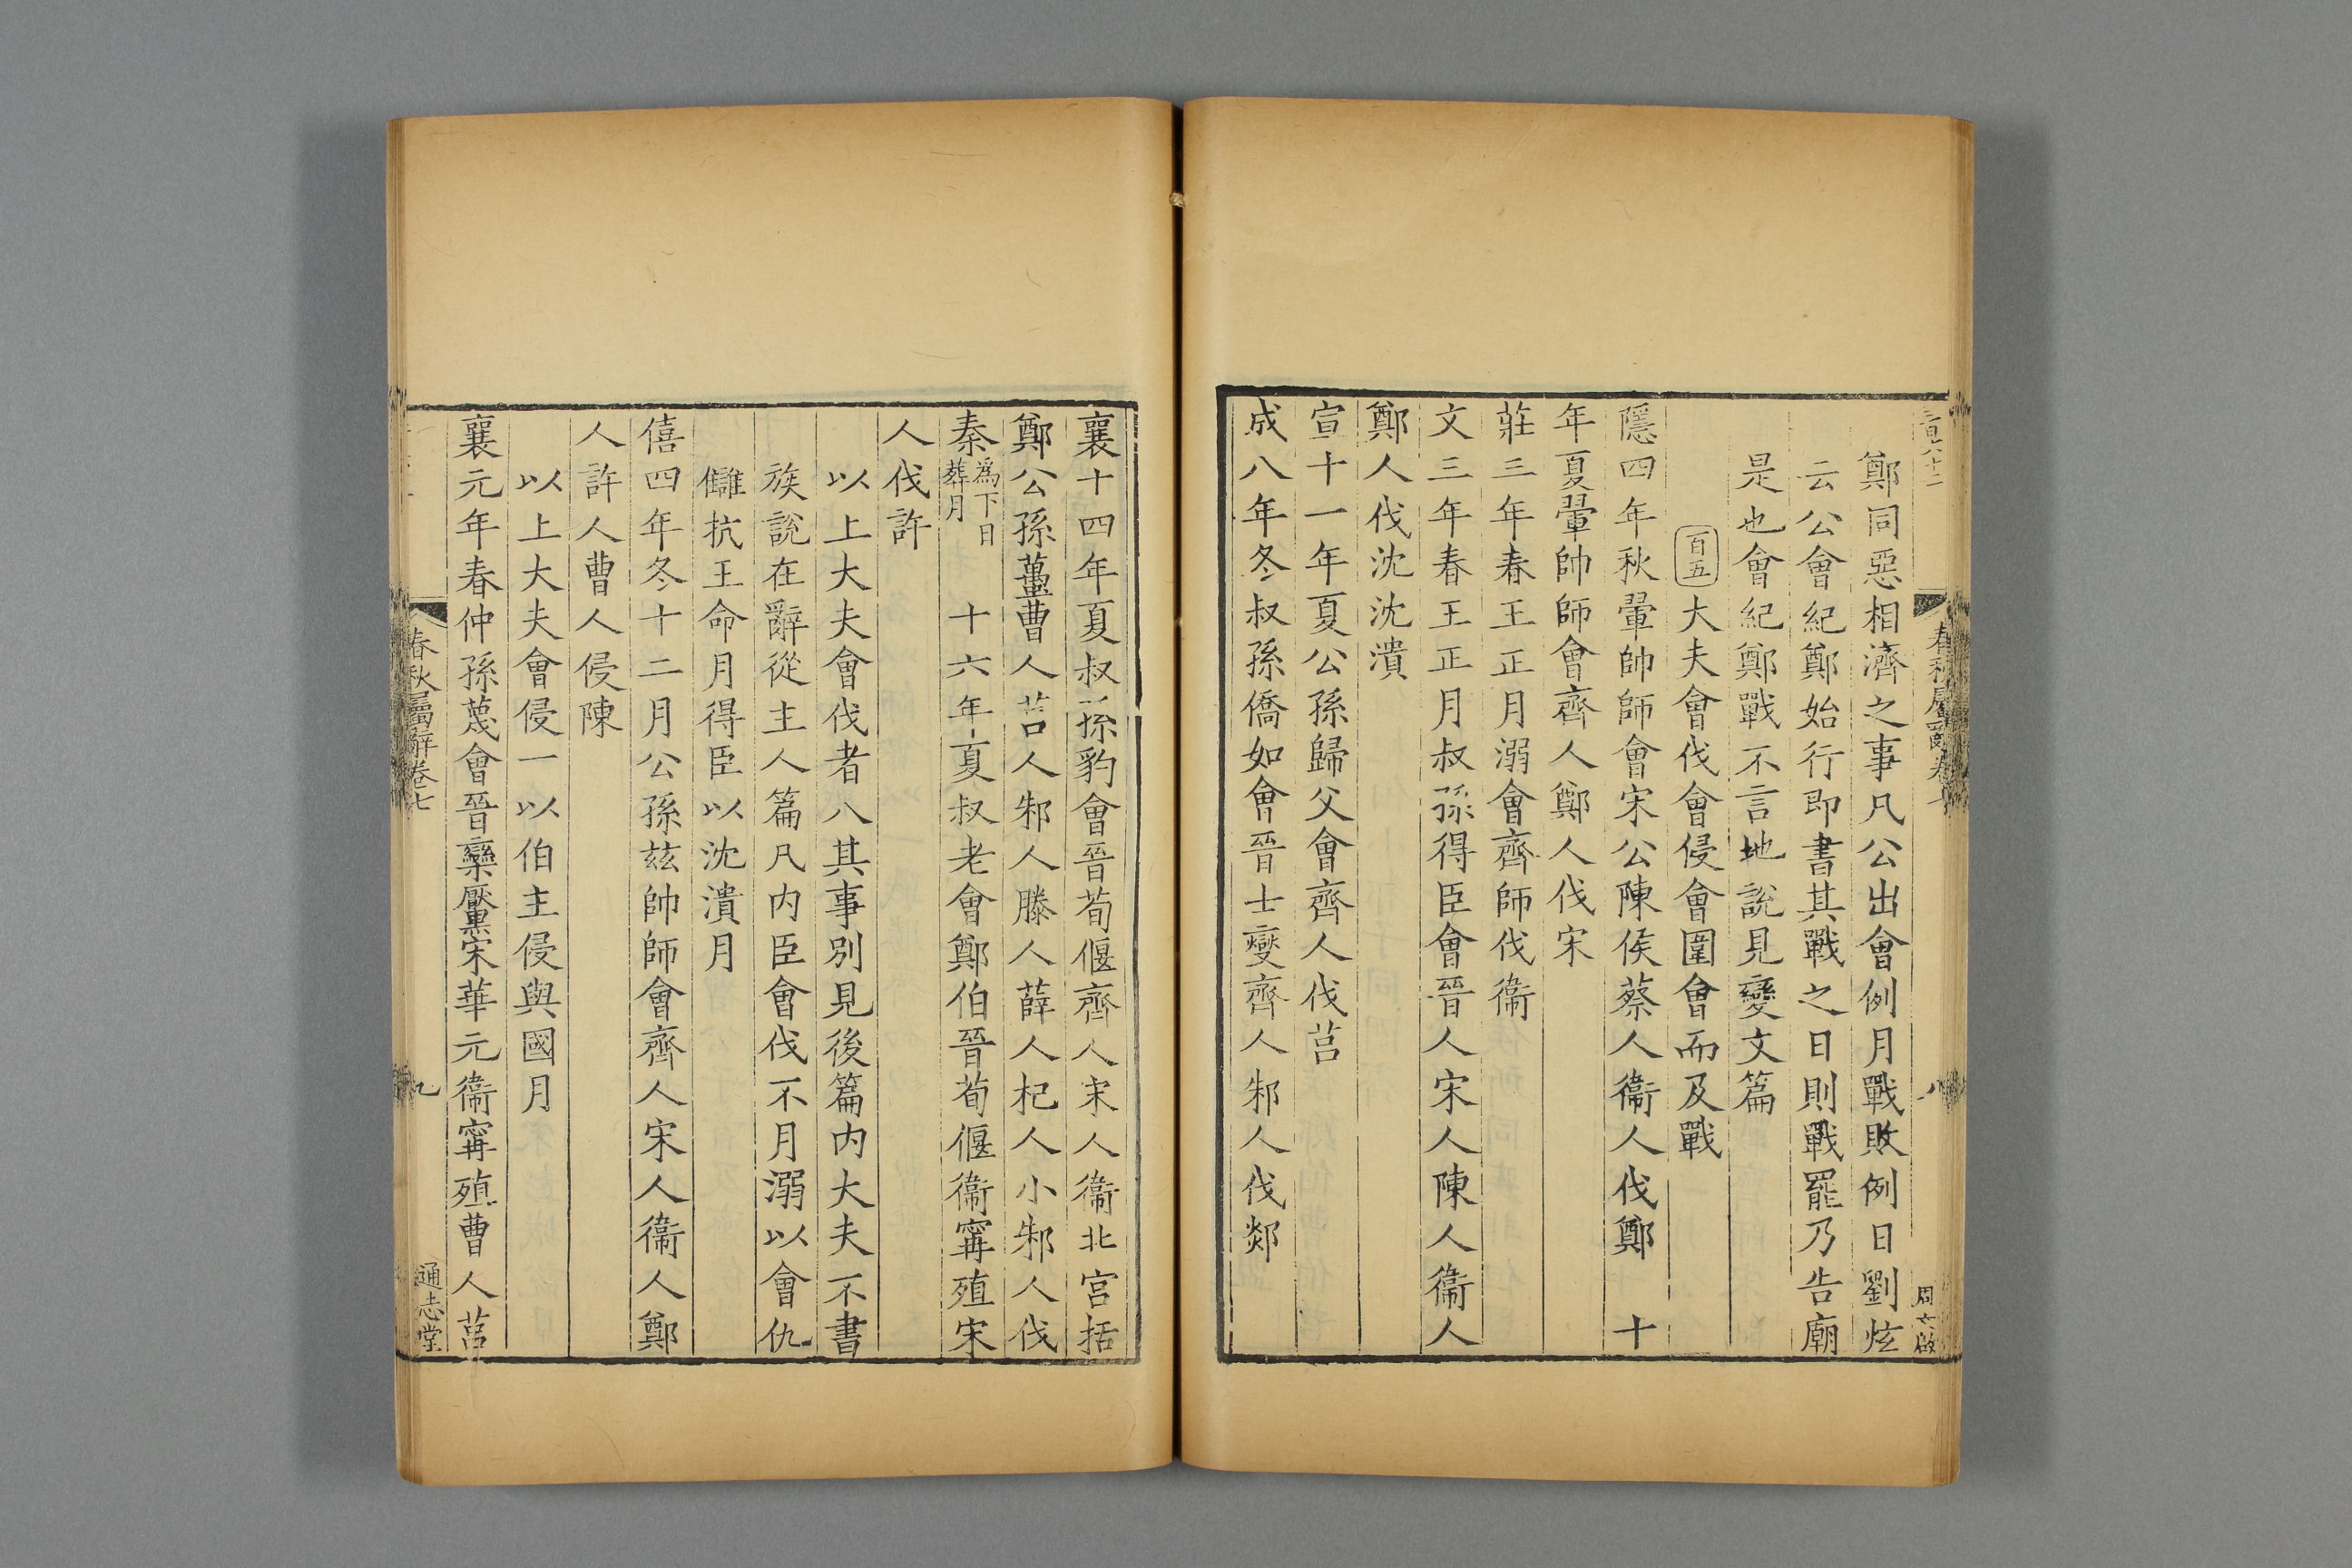 鄭同惡相濟之事凡公出會例月戰敗例日劉炫
云公會紀鄭始行即書其戰之日則戰罷乃告廟
是也會紀鄭戰不言地說見變文篇
百五大夫會伐會侵會圍會而及戰
隱四年秋翬帥師會宋公陳侯蔡人衞人伐鄭 十
年夏翬帥師會齊人鄭人伐宋
莊三年春王正月溺會齊師伐衞
文三年春王正月叔孫得臣會晉人宋人陳人衞人
鄭人伐沈沈潰
宣十一年夏公孫歸父會齊人伐莒
成八年冬叔孫僑如會晉士燮齊人邾人伐郯
襄十四年夏叔孫豹會晉荀偃齊人宋人衞北宮括
鄭公孫蠆曹人莒人邾人滕人薛人杞人小邾人伐
秦爲下日葬月 十六年夏叔老會鄭伯晉荀偃衞甯殖宋
人伐許
以上大夫會伐者八其事別見後篇内大夫不書
族說在辭從主人篇凡内臣會伐不月溺以會仇
讎抗王命月得臣以沈潰月
僖四年冬十二月公孫茲帥師會齊人宋人衞人鄭
人許人曹人侵陳
以上大夫會侵一以伯主侵與國月
襄元年春仲孫蔑會晉欒黶宋華元衞甯殖曹人莒
春秋屬辭卷七
九
通志堂
春秋屬辭卷七
八